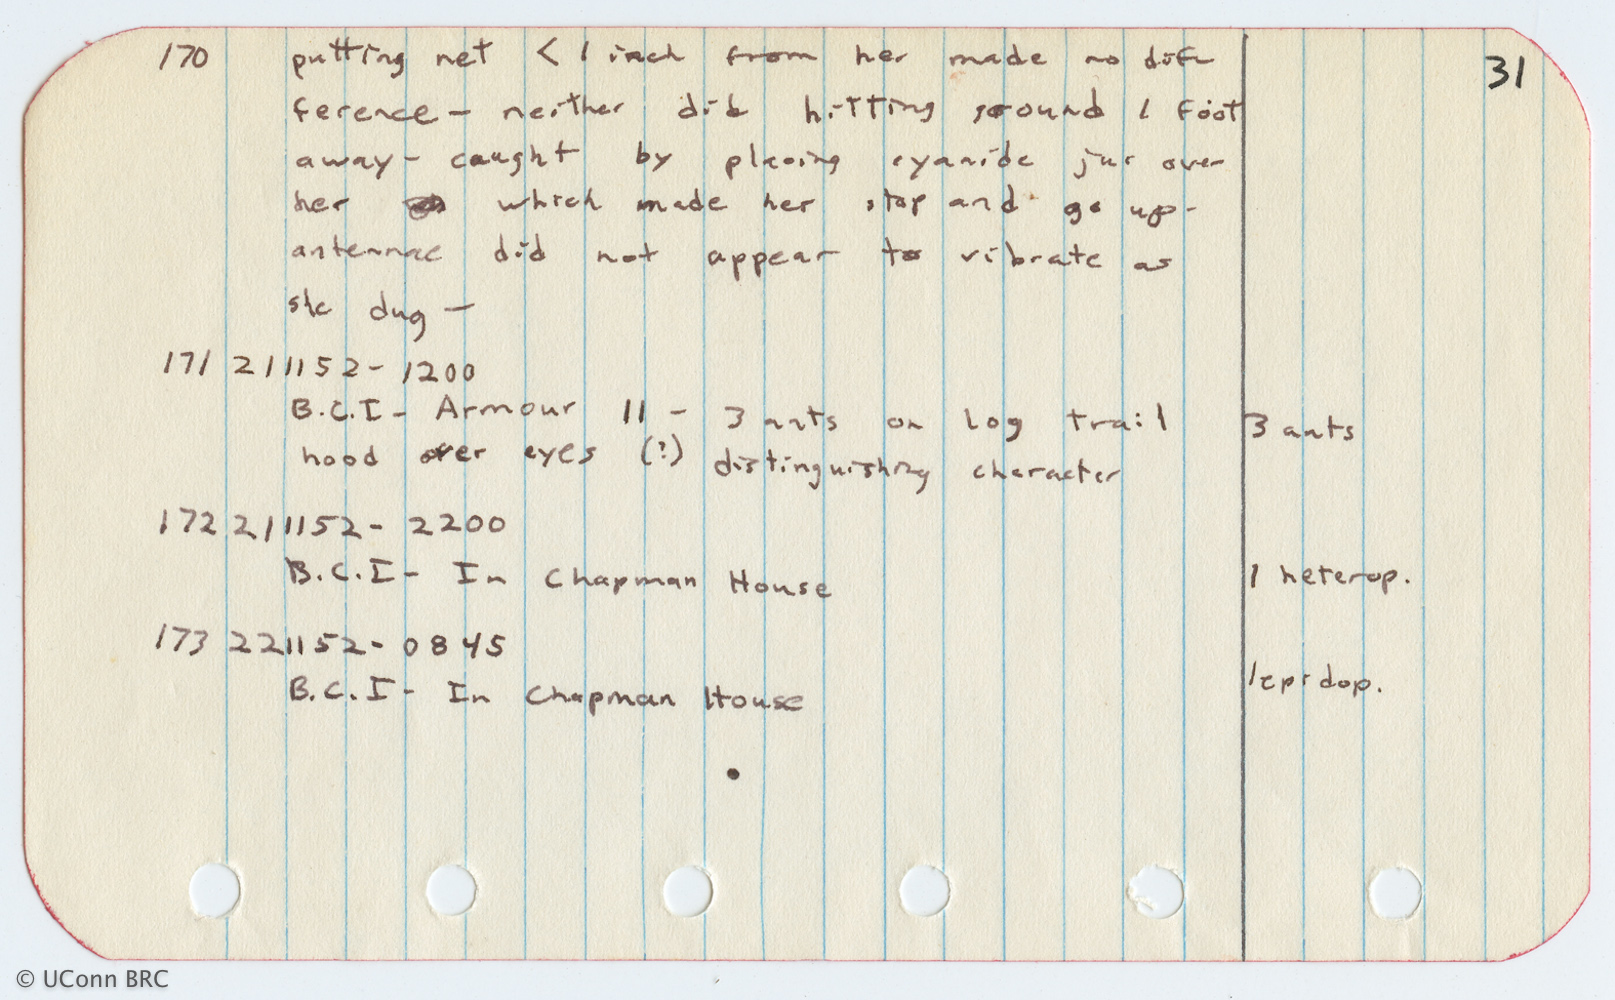 31
170 putting net < 1 inch from her made no diff
ference - neither did hitting ground 1 foot
away - caught by placing cyanide jar over
her which made her stop and go up -
antennae did not appear to vibrate as
she dug -
171 211152 - 1200
B.C.I - Armour 11 - 3 ants on log trail 3 ants
hood over eyes (?) distinguishing character
172 211152 - 2200
B.C.I - In Chapman House 1 heterop.
173 221152 - 0845
B.C.I - In Chapman House lepidop.
© UConn BRC